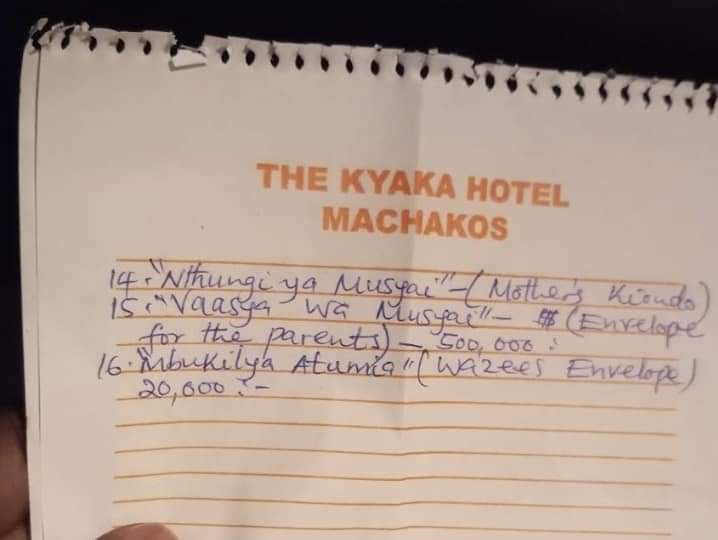 THE KYAKA HOTEL
MACHAKOS
14. "Nthungi ya Musyai" - (Mother's Kiondo)
15. "Vaasya wa Musyai" - $$ (Envelope
for the parents) - 500,000 :
16. "Mbukilya Atumia" (Wazees Envelope)
20,000 :-